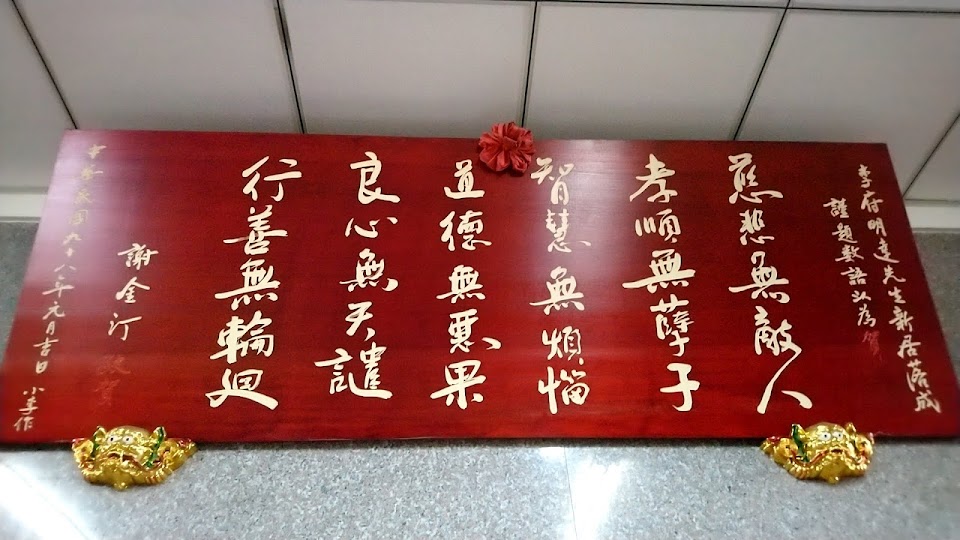 李府明達先生新居落成
謹題數語以為賀
慈悲無敵人
孝順無孽子
智慧無煩惱
道德無惡果
良心無天譴
行善無輪迴
謝金汀 敬賀
中華民國九十八年元月吉日 小李作